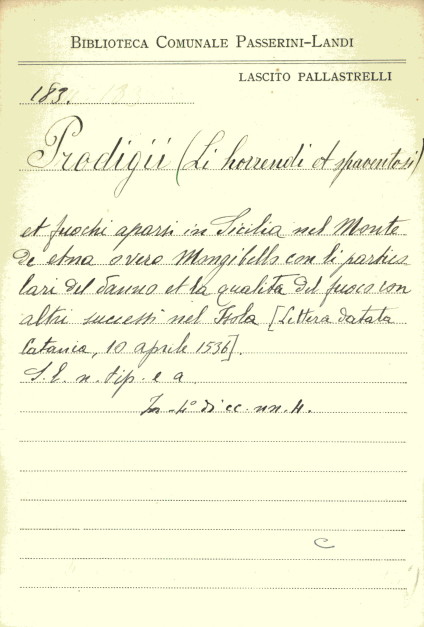 BIBLIOTECA COMUNALE PASSERINI-LANDI
LASCITO PALLASTRELLI
183.
Prodigii (Li horrendi et spaventosi)
et fuochi aparsi in Sicilia nel Monte
de etna overo Mongibello con li partico
lari del danno et la qualita del fuoco con
altri successi nel Isola [Lettera datata
Catania, 10 aprile 1536].
S. E. n. tip. e a.
In-4° di cc. nn. 4.
C